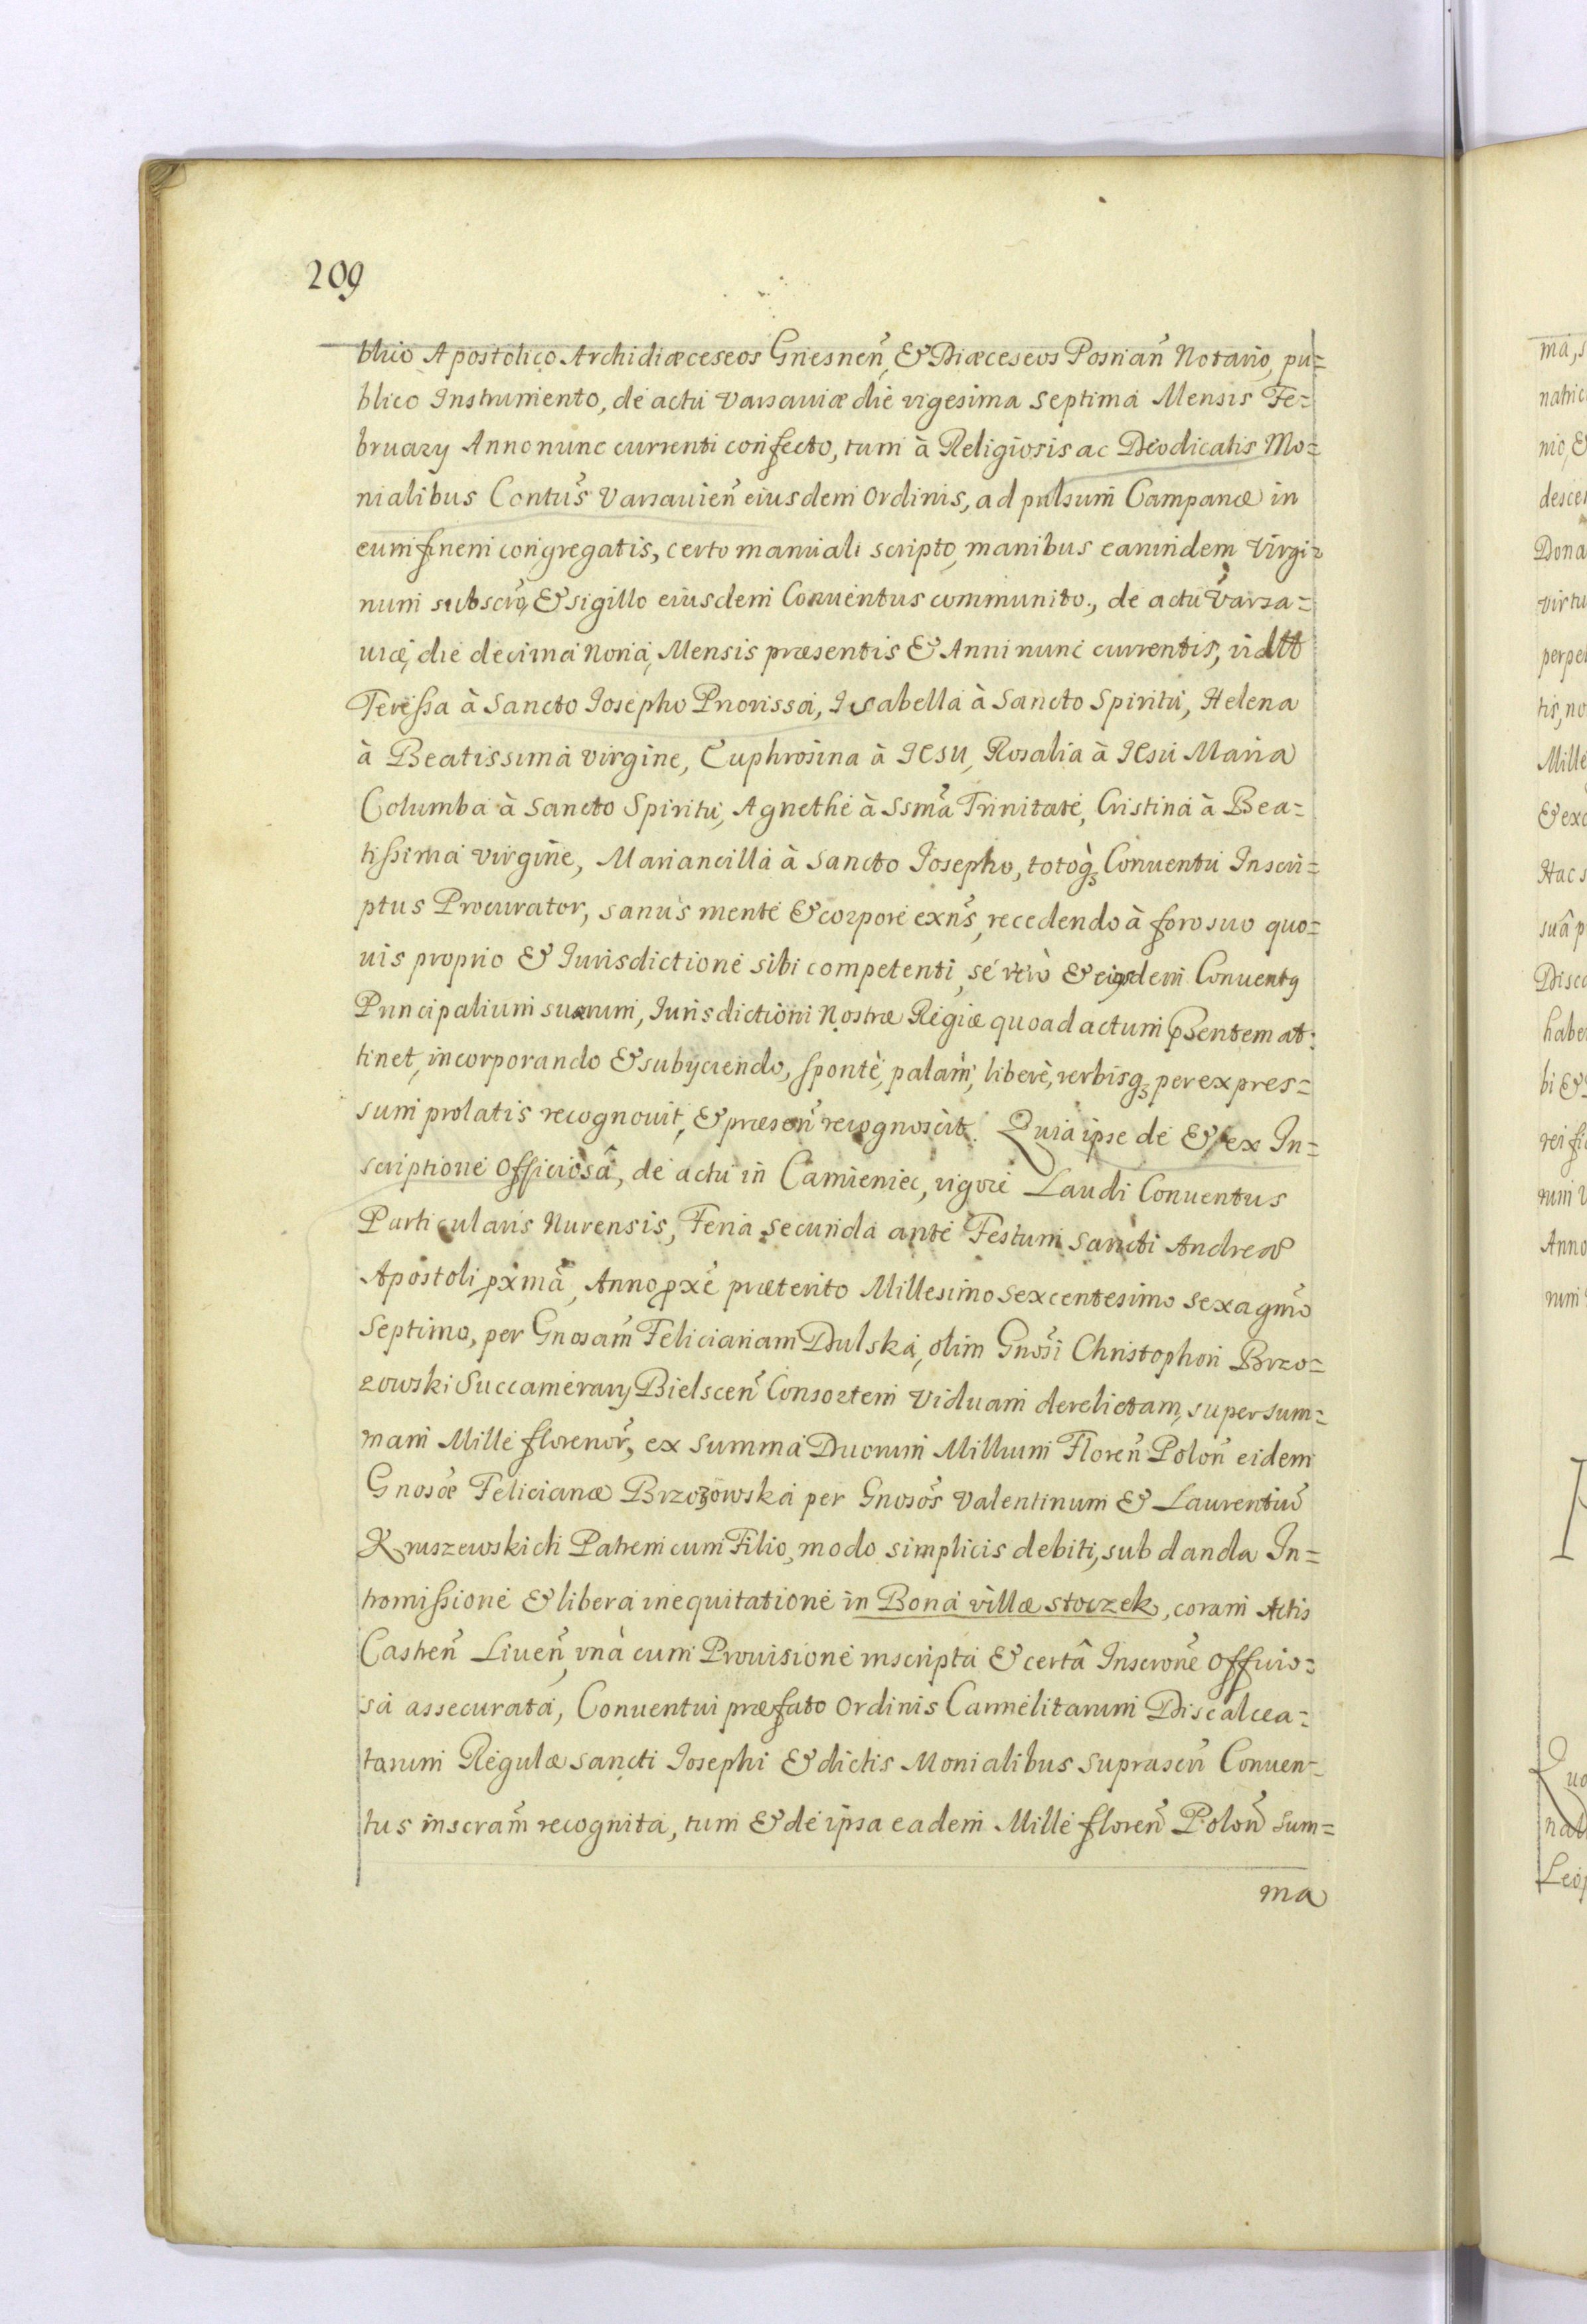 209
blico Apostolico Archidiæceseos Gnesneñ, & Diæceseos Posnañ Notario, pu=
blico Instrumento, de actu Varsauiæ die vigesima septima Mensis Fe=
bruary Anno nunc currenti confecto, tum à Religiosis ac Deodicatis Mo=
nialibus Contus̃ Varsauieñ eiusdem Ordinis, ad pulsum Campanæ in
eum finem congregatis, certo manuali scripto, manibus earundem Virgi=
num subscrõ, & sigillo eiusdem Conuentus communito, de actu Varsa=
uiæ, die decima nona, Mensis præsentis & Anni nunc currentis, vidtt
Teressa à Sancto Iosepho Priorissa, Isabella à Sancto Spiritu, Helena
à Beatissima virgine, Euphrosina à IESU, Rosalia à IESU Maria
Columba à Sancto Spiritu, Agnethe à Ssmã Trinitate, Cristina à Bea=
tissima virgine, Mariancilla à Sancto Iosepho, totoq3 Conuentu Inscri=
ptus Procurator, sanus mente & corpore exñs, recedendo à foro suo quo=
uis proprio & Iurisdictione sibi competenti, se verò & eiusdem Conuentq
Principalium suarum, Iurisdictioni Nostræ Regiæ quoad actum p̃sentem at:
tinet, incorporando & subyciendo, sponte, palam, liberè, verbisq3 per expres=
sum prolatis recognouit, & præseñ recognoscit. Quia ipse de & ex In=
scriptione Officiosâ, de actu in Camieniec, vigore Laudi Conuentus
Particularis Nurensis, Feria secunda ante Festum Sancti Andreæ
Apostoli pxmã, Anno pxẽ præterito Millesimo sexcentesimo sexagmõ
Septimo, per Gnosam̃ Felicianam Dulska, olim Gnosĩ Christophori Brzo=
zowski Succamerary Bielsceñ Consortem Viduam derelictam, super sum=
mam Mille florenor̃, ex summa Duorum Millium Floreñ Poloñ eidem
Gnosæ̃ Felicianæ Brzozowska per Gnosos̃ Valentinum & Laurentiũ
Kruszewskich Patrem cum Filio, modo simplicis debiti, sub danda In=
tromissione & libera inequitatione in Bona villæ Stoczek, coram Actis
Castreñ Liueñ, vnà cum Prouisione inscripta & certâ Inscronẽ Officio=
sa assecurata, Conuentui præfato Ordinis Carmelitarum Discalcea=
tarum Regulæ Sancti Iosephi & dictis Monialibus suprascrı̃ Conuen=
tus inscram̃ recognita, tum & de ipsa eadem Mille floreñ Poloñ sum=
ma